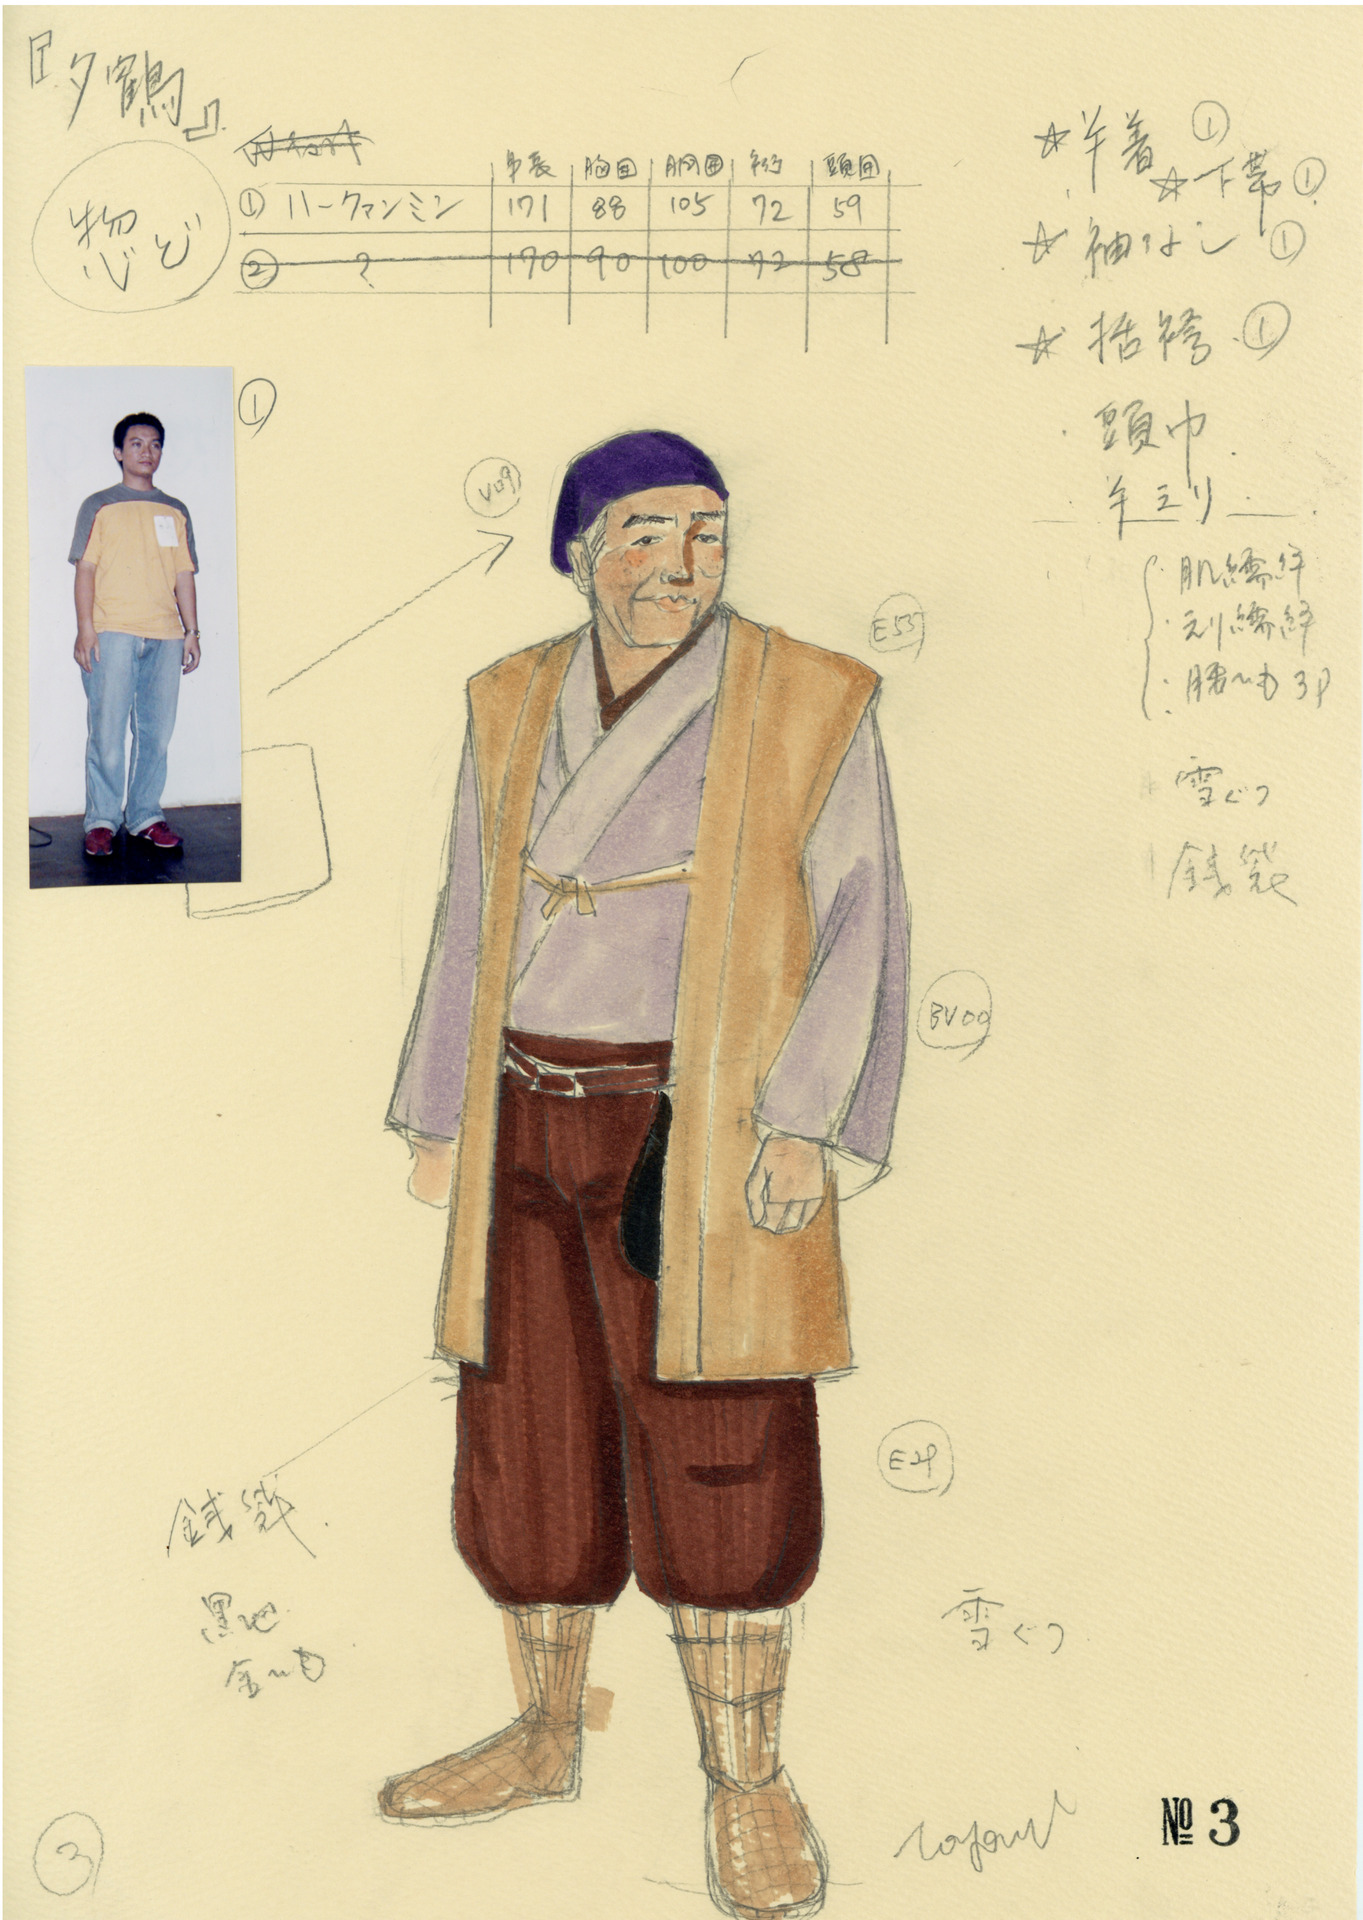 『夕鶴』
惣ど
身長 胸囲 胴囲 裄 頭囲
① ハークァンミン 171 88 105 72 59
② ? 170 90 100 72 58
①
☆半着 ①
☆下帯 ①
☆袖なし ①
☆括袴 ①
頭巾
半エリ
肌襦袢
えり襦袢
腰ヒモ 3P
雪ぐつ
銭袋
V09
E55
BV00
E29
銭袋
黒地
金ヒモ
雪ぐつ
③
№ 3